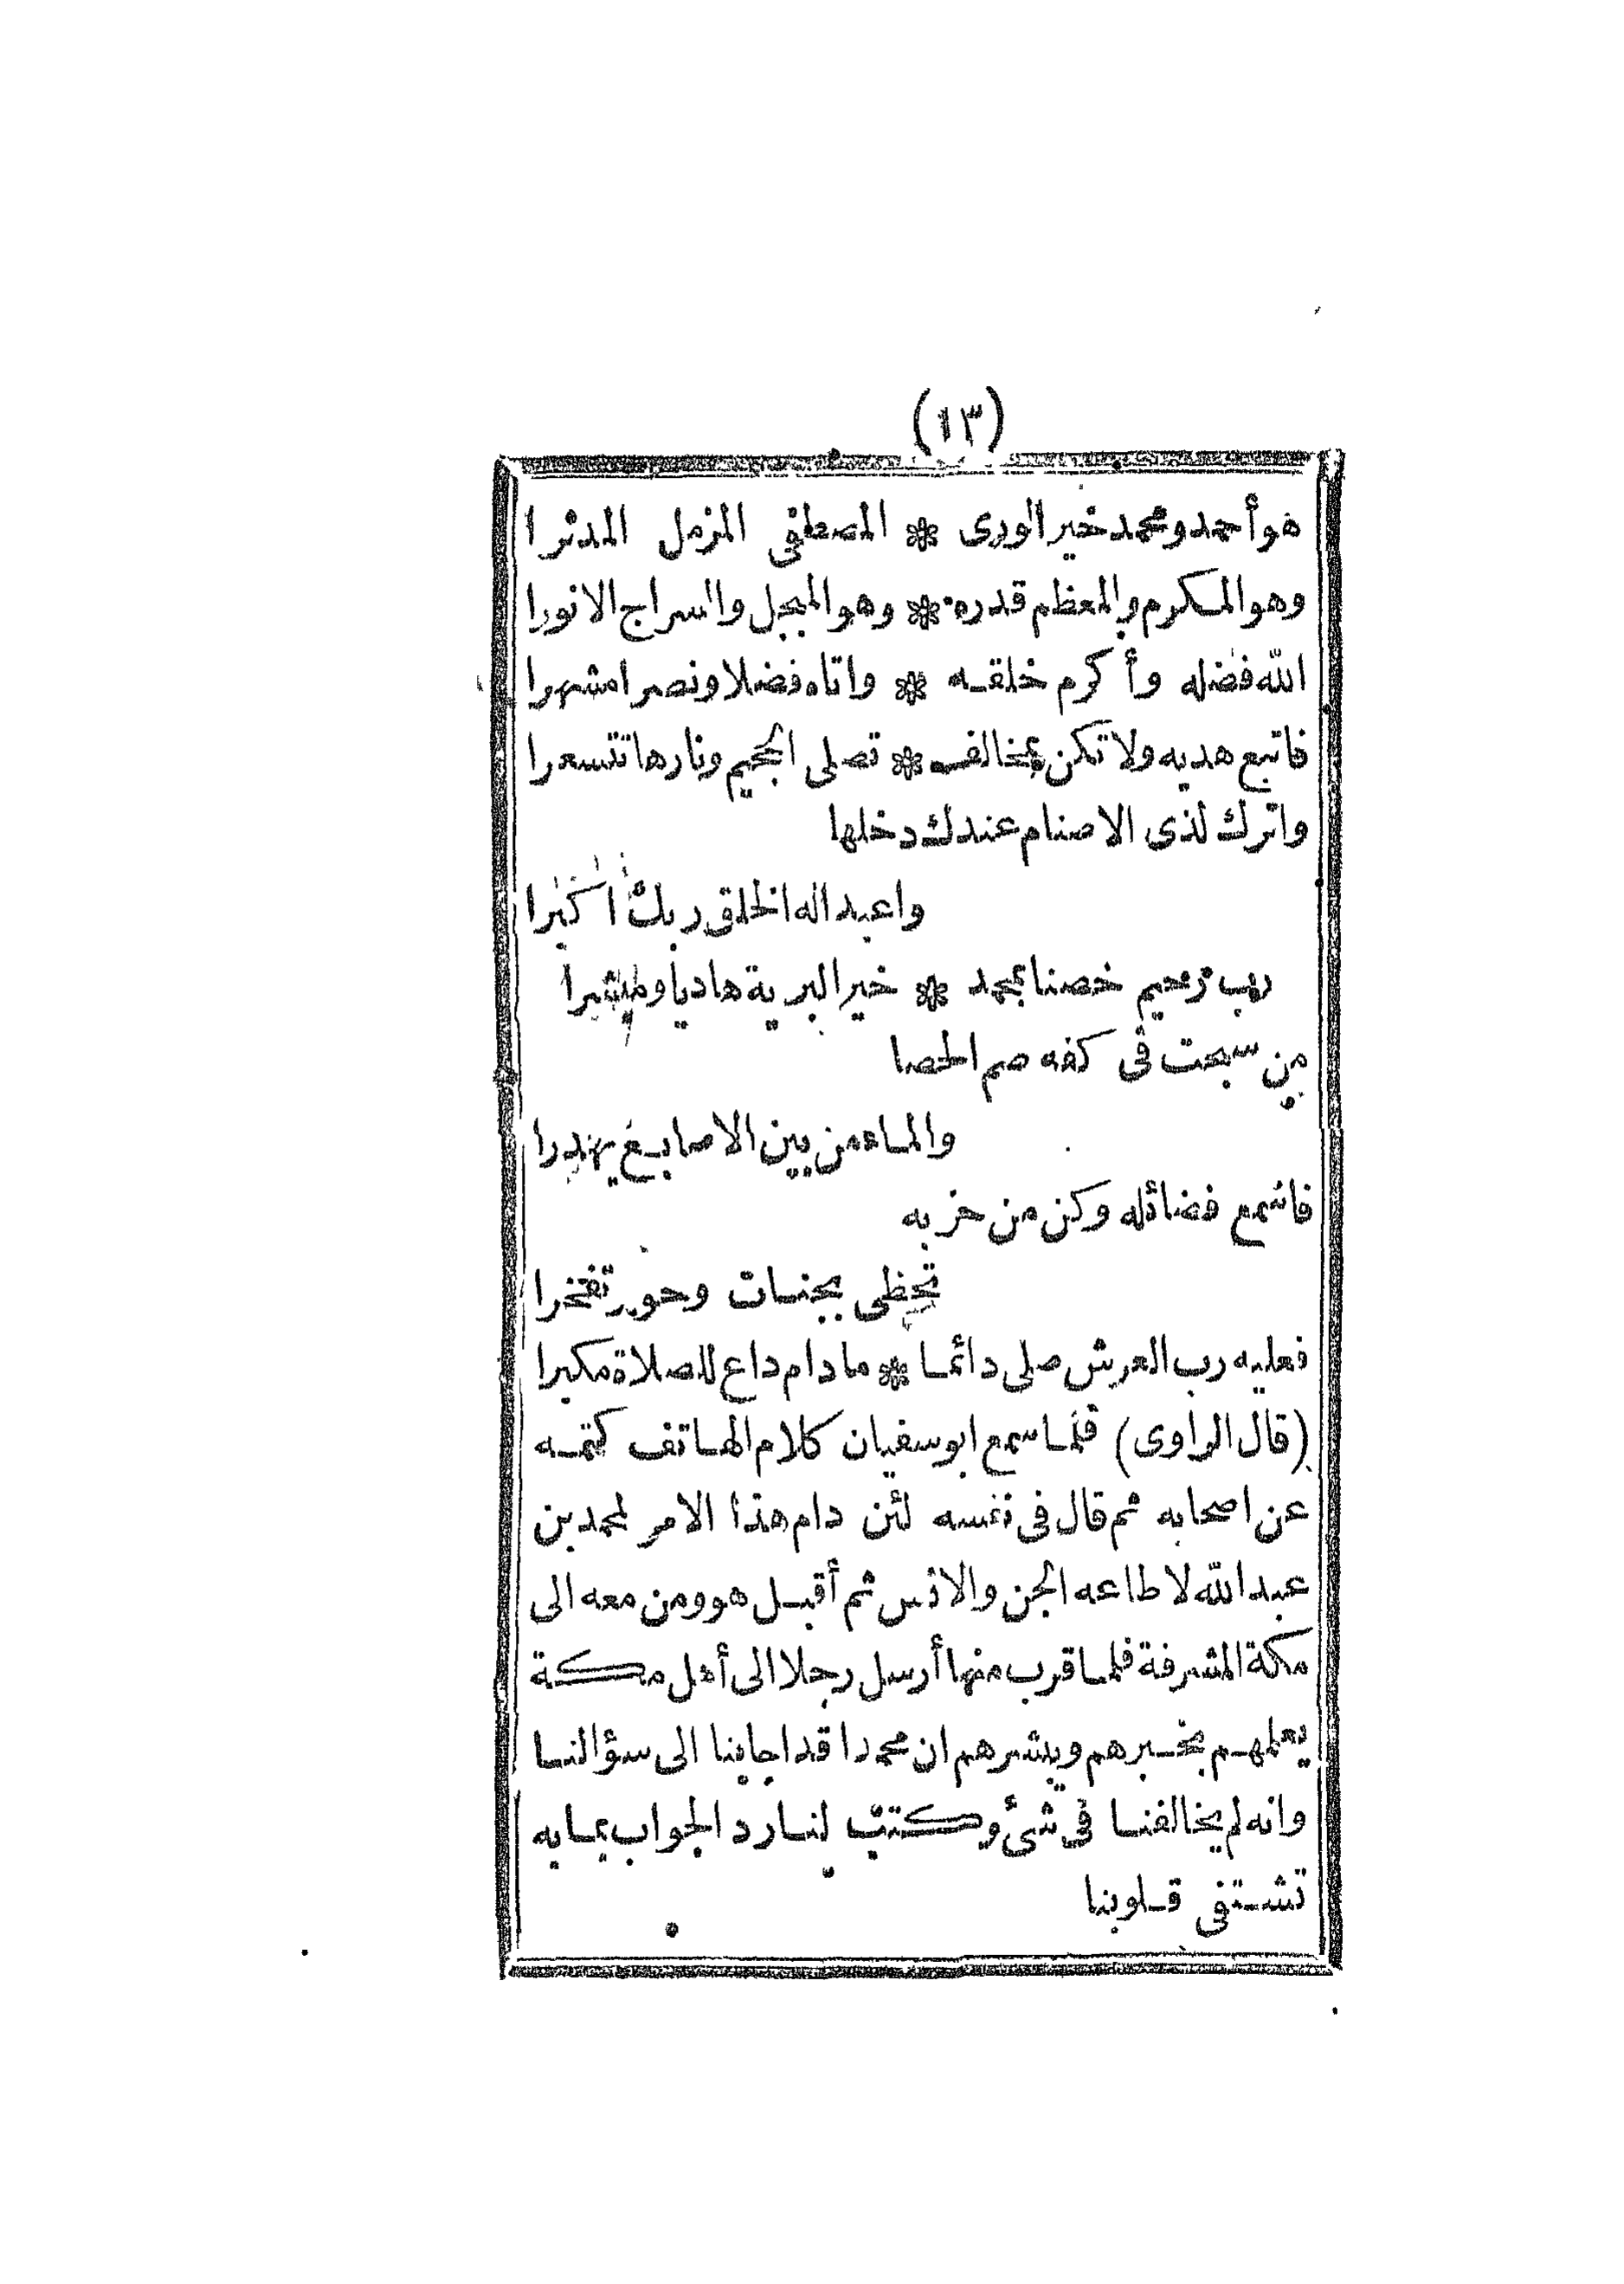 (١٣)
هو أحمد ومحمد خير الورى * المصطفى المزمل المدثرا
وهو المكرم والمعظم قدره * وهو المبجل والسراج الانورا
الله فضله وأكرم خلقه * واتاه فضلا ونصرا مشهرا
فاتبع هديه ولا تكن بمخالف * تصلى الجحيم ونارها تتسعرا
واترك لذى الاصنام عندك دخلها
واعبد اله الخلق ربك اكبرا
رب رحيم خصنا بمحمد * خير البرية هاديا ومبشرا
من سبحت فى كفه صم الحصا
والماء من بين الاصابع يهدرا
فاسمع فضائله وكن من حزبه
تحظى بجنات وحور تفخرا
فعليه رب العرش صلى دائما * ما دام داع للصلاة مكبرا
(قال الراوى) فلما سمع ابو سفيان كلام الهاتف كتمه
عن اصحابه ثم قال فى نفسه لئن دام هذا الامر لمحمد بن
عبد الله لاطاعه الجن والانس ثم أقبل هو ومن معه الى
مكة المشرفة فلما قرب منها أرسل رجلا الى أهل مكة
يعلمهم بخبرهم ويبشرهم ان محمدا قد اجابنا الى سؤالنا
وانه لم يخالفنا فى شئ وكتب لنا رد الجواب بما به
تشتفى قلوبنا